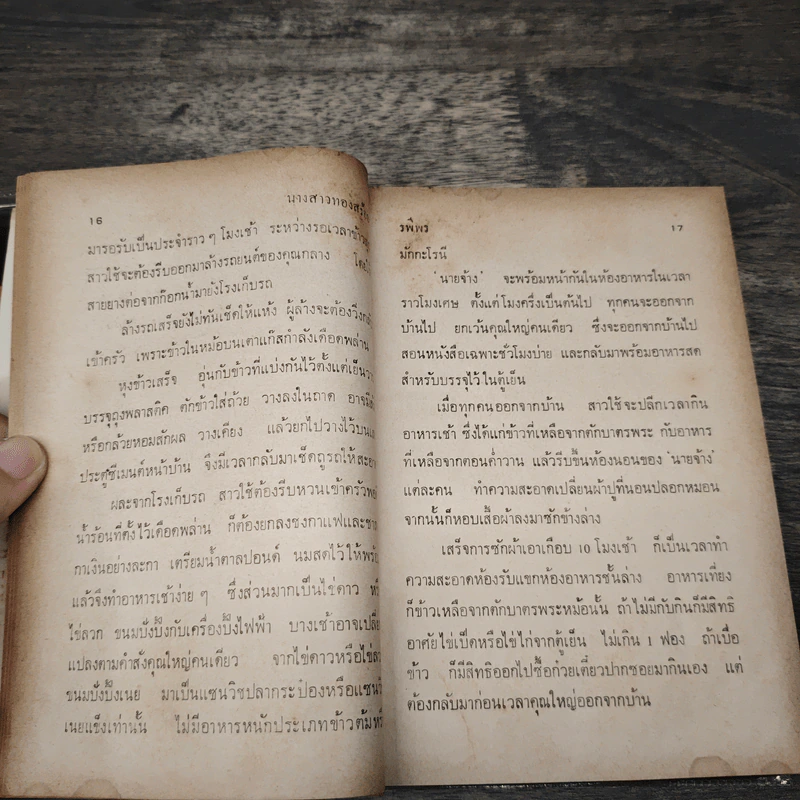 16
นางสาวทองสร้อย
มารอรับเป็นประจำราว ๆ โมงเช้า ระหว่างรอเวลาข้าวสุก
สาวใช้จะต้องรีบออกมาล้างรถยนต์ของคุณกลาง
สายยางต่อจากก๊อกน้ำมายังโรงเก็บรถ
ล้างรถเสร็จยังไม่ทันเช็ดให้แห้ง ผู้ล้างจะต้องวิ่ง
เข้าครัว เพราะข้าวในหม้อบนเตาแก๊สกำลังเดือดพล่าน
หุงข้าวเสร็จ อุ่นกับข้าวที่แบ่งกันไว้ตั้งแต่เย็น
บรรจุถุงพลาสติค ตักข้าวใส่ถ้วย วางลงในถาด อาจ
หรือกล้วยหอมสักผล วางเคียง แล้วยกไปวางไว้บน
ประตูซีเมนต์หน้าบ้าน จึงมีเวลากลับมาเช็ดถูรถให้
ผละจากโรงเก็บรถ สาวใช้ต้องรีบหวนเข้าครัว
น้ำร้อนที่ตั้งไว้เดือดพล่าน ก็ต้องยกลงชงกาแฟและ
กาเงินอย่างละกา เตรียมน้ำตาลปอนด์ นมสดไว้ให้พร้อม
แล้วจึงทำอาหารเช้าง่าย ๆ ซึ่งส่วนมากเป็นไข่ดาว
ไข่ลวก ขนมปังปิ้งกับเครื่องปิ้งไฟฟ้า บางเช้าอาจเปลี่ยน
แปลงตามคำสั่งคุณใหญ่คนเดียว จากไข่ดาวหรือไข่ลวก
ขนมปังปิ้งเนย มาเป็นแซนวิชปลากระป๋องหรือแซนวิช
เนยแข็งเท่านั้น ไม่มีอาหารหนักประเภทข้าวต้ม
รพีพร
17
มักกะโรนี
'นายจ้าง' จะพร้อมหน้ากันในห้องอาหารในเวลา
ราวโมงเศษ ตั้งแต่โมงครึ่งเป็นต้นไป ทุกคนจะออกจาก
บ้านไป ยกเว้นคุณใหญ่คนเดียว ซึ่งจะออกจากบ้านไป
สอนหนังสือเฉพาะชั่วโมงบ่าย และกลับมาพร้อมอาหารสด
สำหรับบรรจุไว้ในตู้เย็น
เมื่อทุกคนออกจากบ้าน สาวใช้จะปลีกเวลากิน
อาหารเช้า ซึ่งได้แก่ข้าวที่เหลือจากตักบาตรพระ กับอาหาร
ที่เหลือจากตอนค่ำวาน แล้วรีบขึ้นห้องนอนของ 'นายจ้าง'
แต่ละคน ทำความสะอาดเปลี่ยนผ้าปูที่นอนปลอกหมอน
จากนั้นก็หอบเสื้อผ้าลงมาซักข้างล่าง
เสร็จการซักผ้าเอาเกือบ 10 โมงเช้า ก็เป็นเวลาทำ
ความสะอาดห้องรับแขกห้องอาหารชั้นล่าง อาหารเที่ยง
ก็ข้าวเหลือจากตักบาตรพระหม้อนั้น ถ้าไม่มีกับกินก็มีสิทธิ
อาศัยไข่เป็ดหรือไข่ไก่จากตู้เย็น ไม่เกิน 1 ฟอง ถ้าเบื่อ
ข้าว ก็มีสิทธิออกไปซื้อก๋วยเตี๋ยวปากซอยมากินเอง แต่
ต้องกลับมาก่อนเวลาคุณใหญ่ออกจากบ้าน